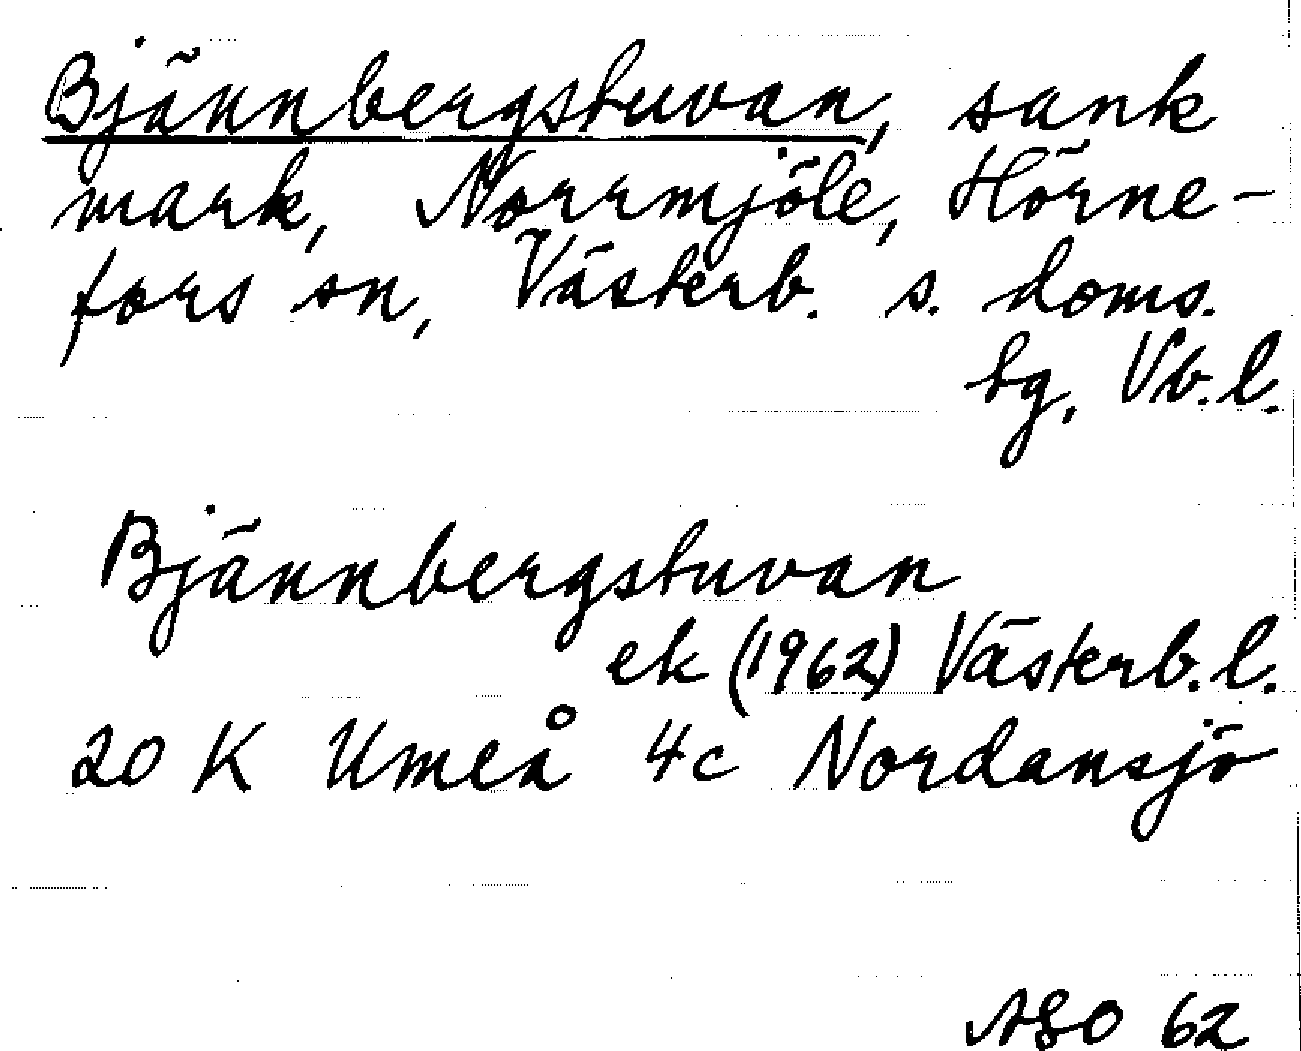 Bjännbergstuvan, sank
mark, Norrmjöle, Hörne-
fors sn, Västerb. s. doms.
tg, Vb. l.
Bjännbergstuvan
ek (1962) Västerb. l.
20 K Umeå 4c Nordansjö
ASO 62